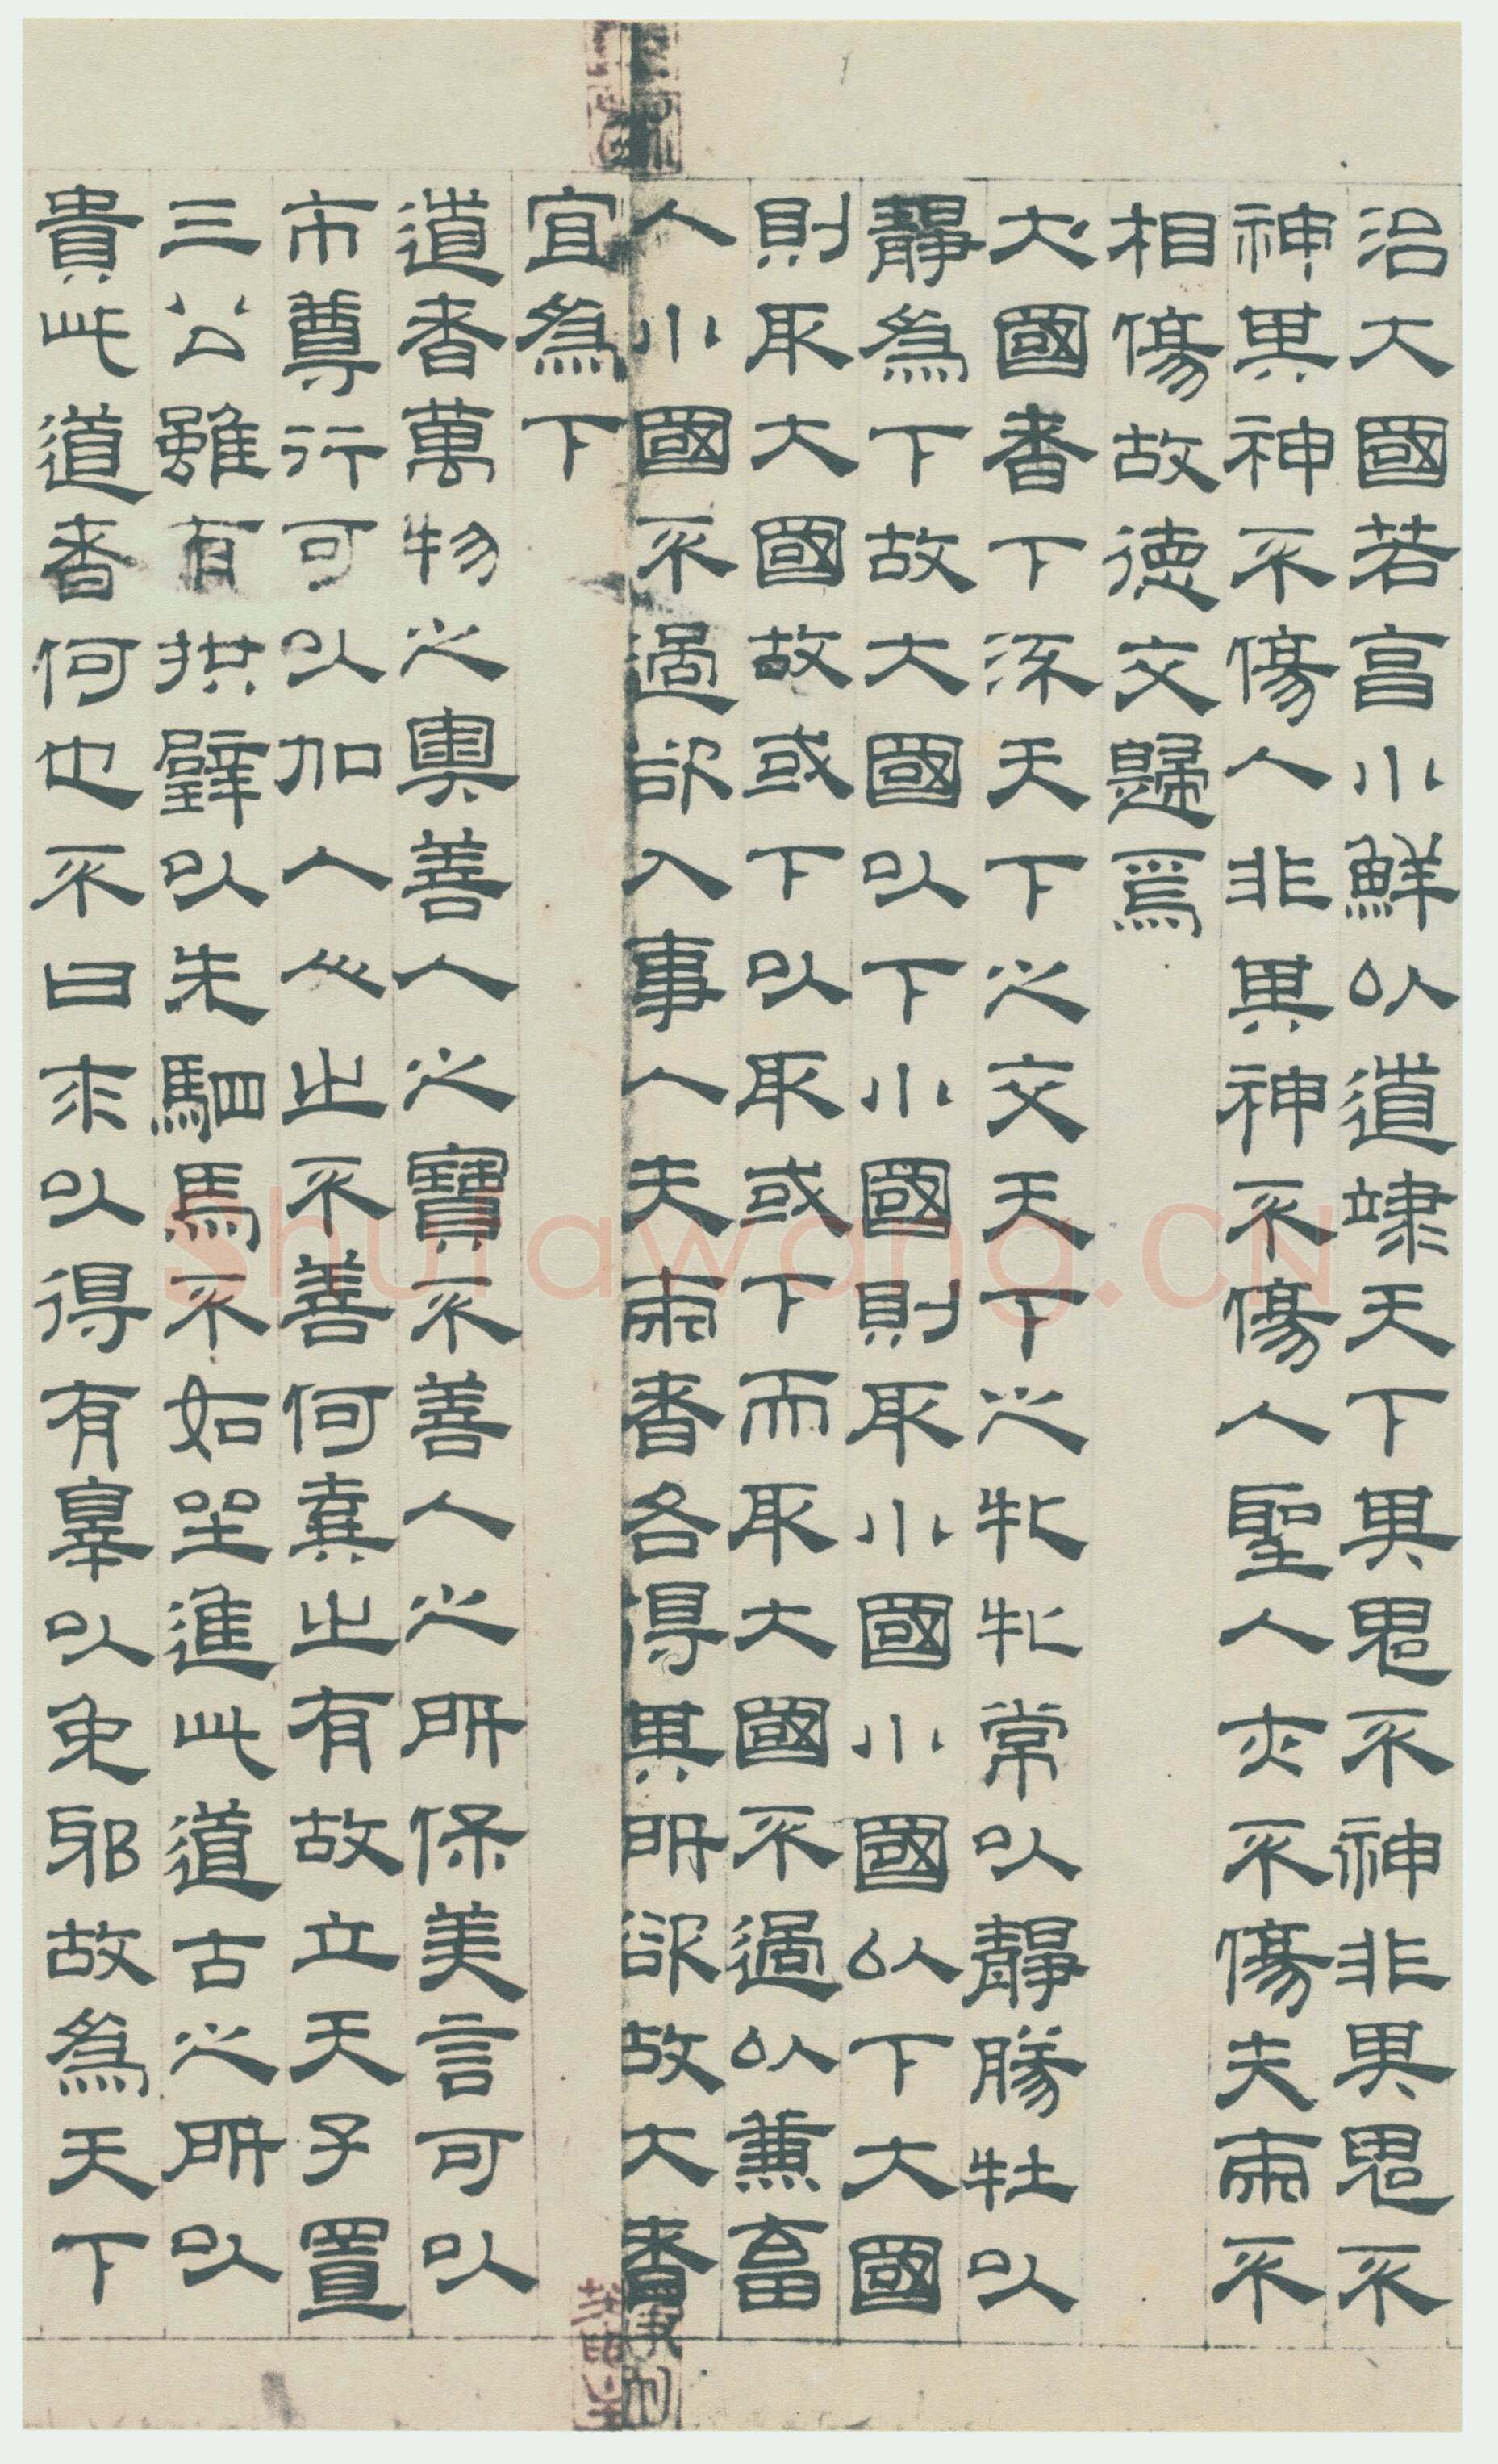 治大國若亯小鮮以道竦天下其鬼不神非其鬼不
神其神不傷人非其神不傷人聖人亦不傷夫兩不
相傷故德交歸焉
大國者下流天下之交天下之牝牝常以靜勝牡以
靜為下故大國以下小國則取小國小國以下大國
則取大國故或下以取或下而取大國不過以兼畜
人小國不過欲入事人夫兩者各得其所欲故大者
宜為下
道者萬物之奧善人之寶不善人之所保美言可以
市尊行可以加人人之不善何棄之有故立天子置
三公雖有拱璧以先駟馬不如坐進此道古之所以
貴此道者何也不曰求以得有辠以免邪故為天下
shufawang.CN